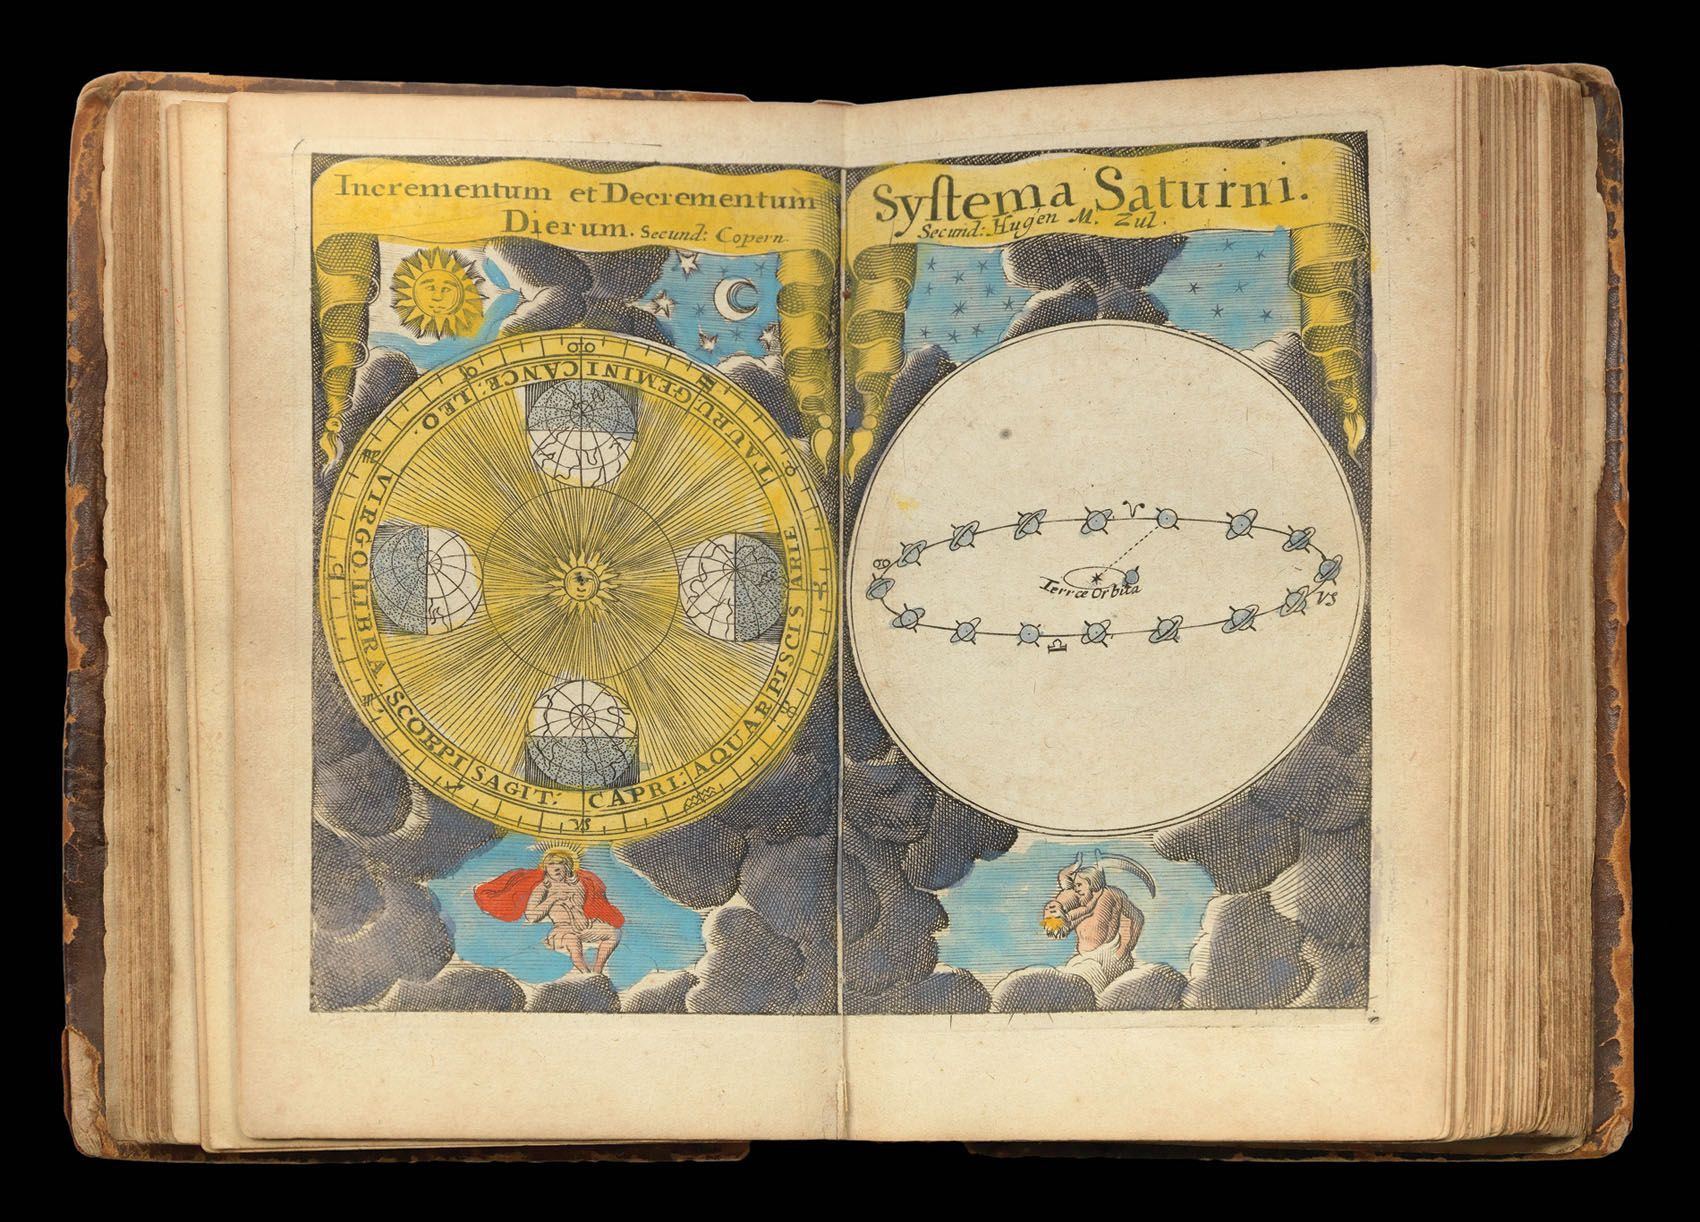 Incrementum et Decrementum
Dierum. Secund: Copern.
CANCE:
GEMINI
TAURU:
ARIE
PISCIS
AQUAR
CAPRI:
SAGIT:
SCORPI
LIBRA.
VIRGO.
LEO.
Syſtema Saturni.
Secund: Hugen M. Zul.
♈
♋
Terræ Orbita
♑
♎